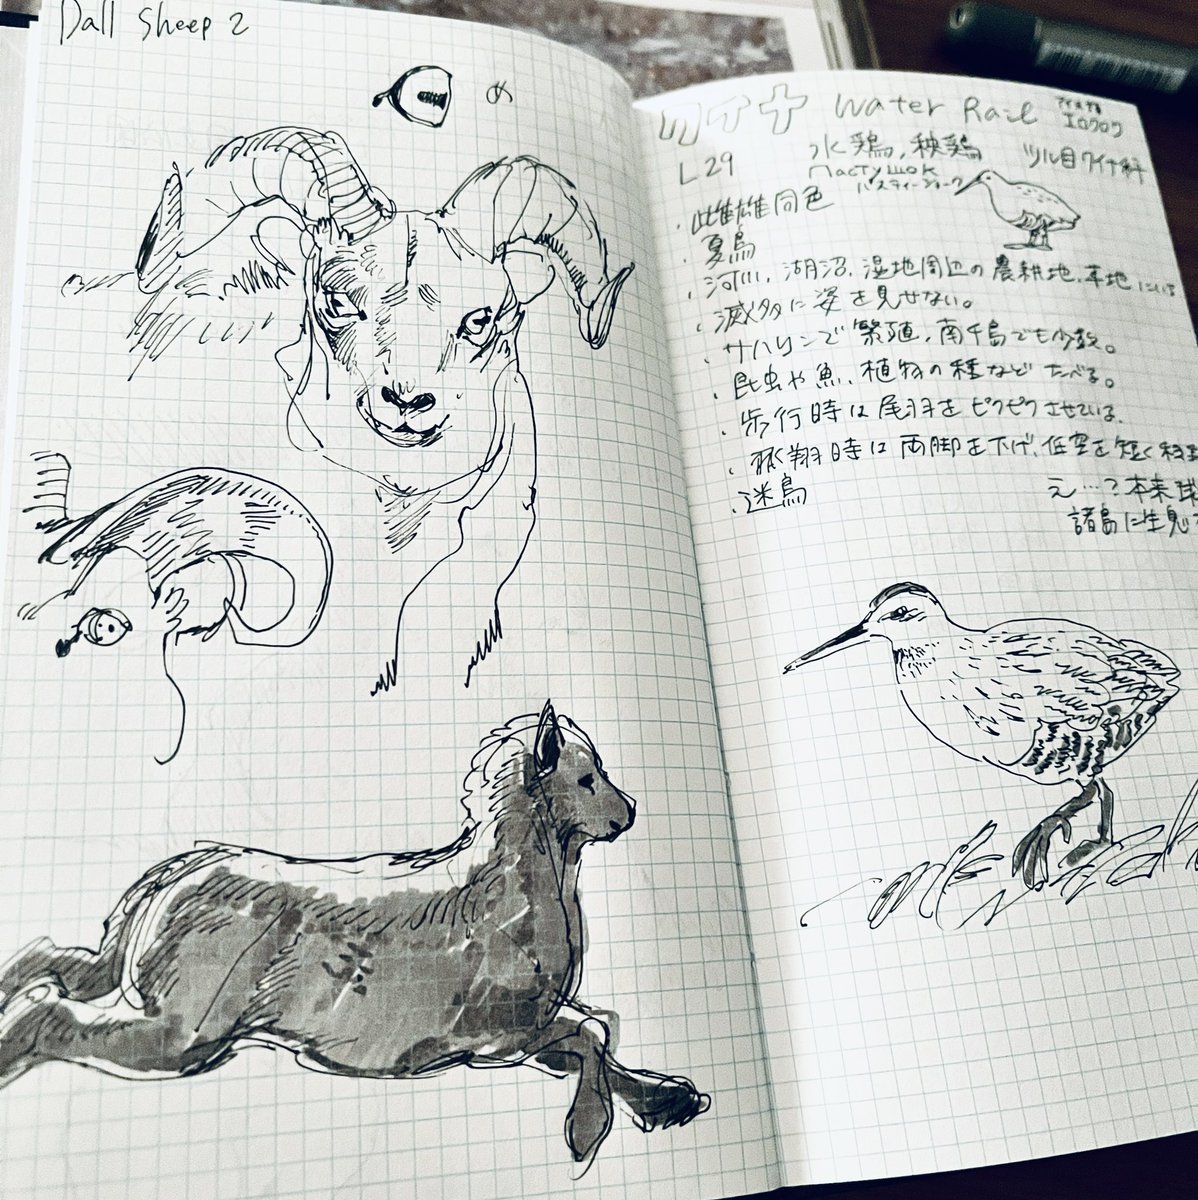 Dall Sheep 2
め
クイナ Water Rail アイヌ語 エロクロク
L 29 水鶏、秧鶏 ツル目クイナ科
Пастушок
パスティーショーク
・雌雄同色
・夏鳥
・河川、湖沼、湿地周辺の農耕地、草地にいる
・滅多に姿を見せない。
・サハリンで繁殖、南千島でも少数。
・昆虫や魚、植物の種などたべる。
・歩行時は尾羽をピクピクさせている。
・飛翔時は両脚を下げ、低空を短く移動
・迷鳥 え…?本来球
諸島に生息